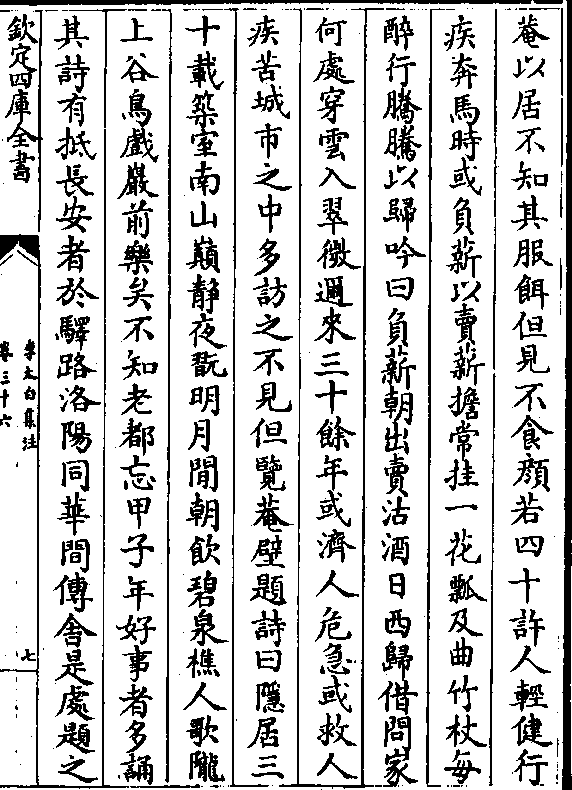 菴以居不知其服餌但見不食顔若四十許人輕健行
疾奔馬時或負薪以賣薪擔常挂一花瓢及曲竹杖每
醉行騰騰以歸吟曰負薪朝出賣沽酒日西歸借問家
何處穿雲入翠微邇來三十餘年或濟人危急或救人
疾苦城市之中多訪之不見但覽菴壁題詩曰隱居三
十載築室南山巔靜夜翫明月閒朝飲碧泉樵人歌隴
上谷鳥戲巖前樂矣不知老都忘甲子年好事者多誦
其詩有抵長安者於驛路洛陽同華間傳舍是處題之
欽定四庫全書
李太白集注
卷三十六
七